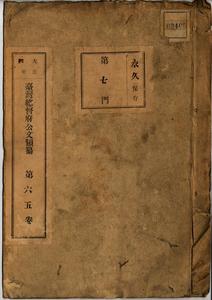 永久保存
第七門
臺灣總督府公文類纂 第六五卷